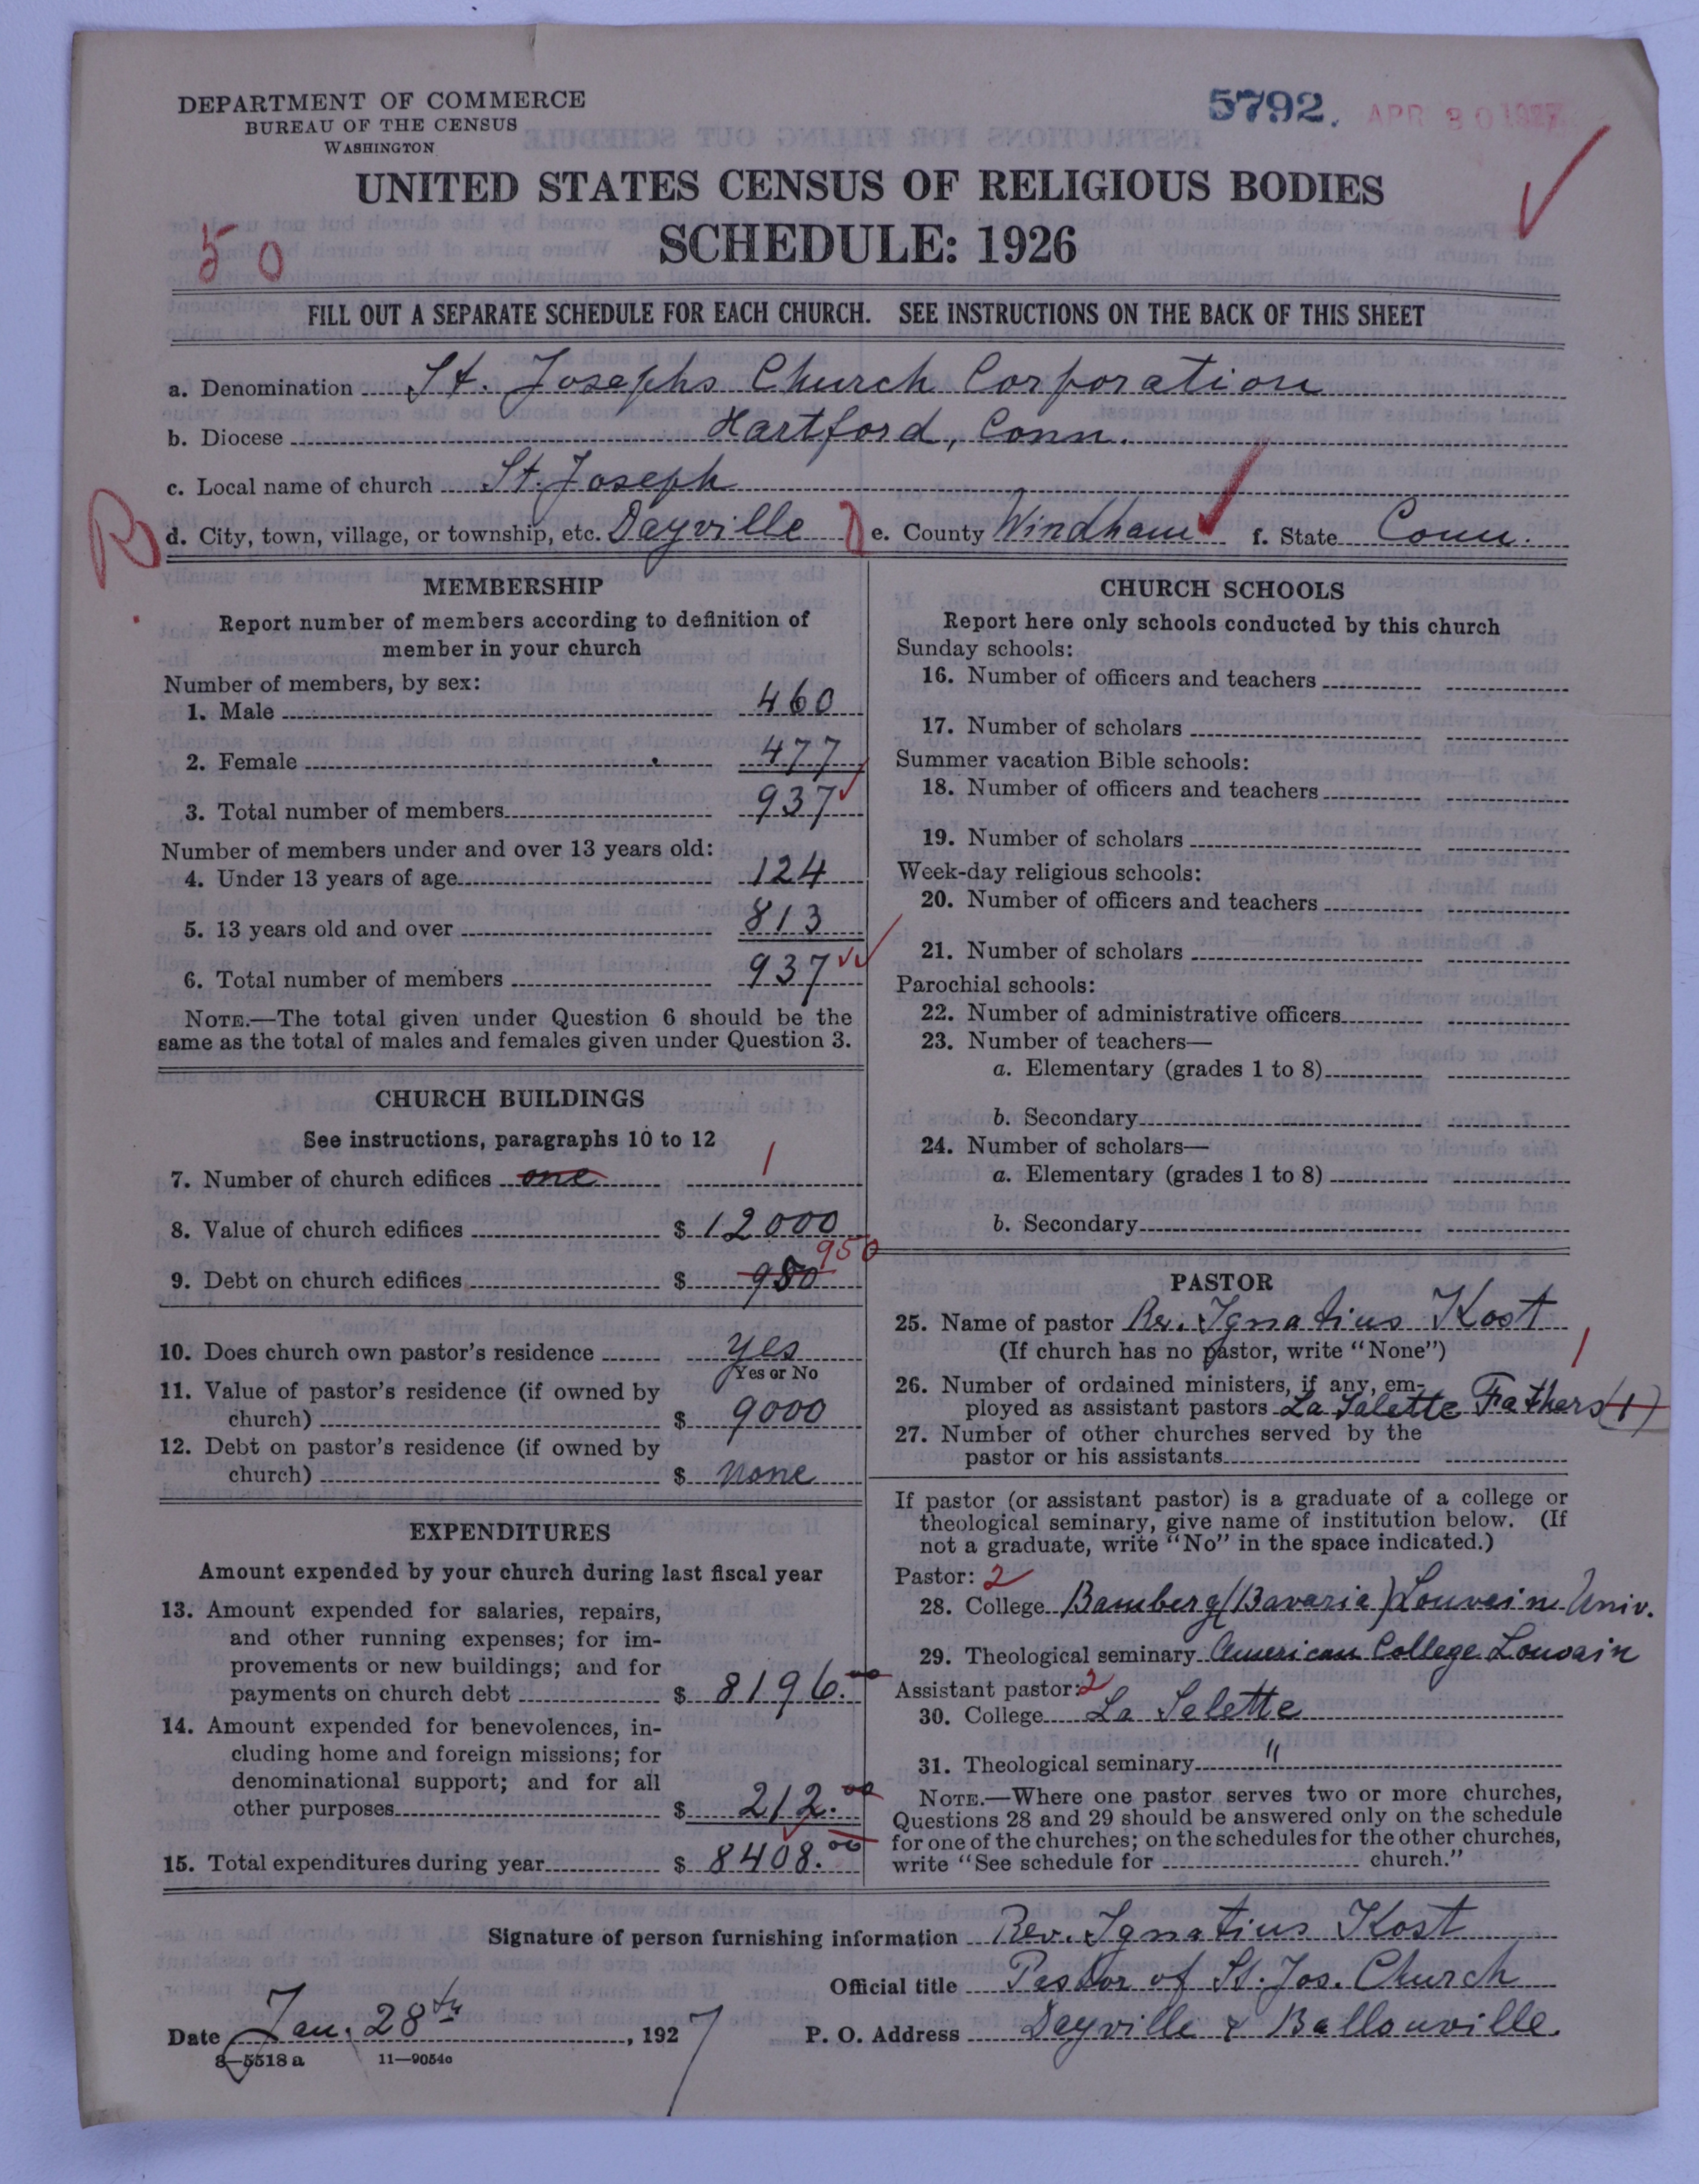 DEPARTMENT OF COMMERCE
BUREAU OF THE CENSUS
WASHINGTON
5792.
APR 30 1927
UNITED STATES CENSUS OF RELIGIOUS BODIES
SCHEDULE: 1926
50
FILL OUT A SEPARATE SCHEDULE FOR EACH CHURCH. SEE INSTRUCTIONS ON THE BACK OF THIS SHEET
a. Denomination St. Josephs Church Corporation
b. Diocese Hartford, Conn.
c. Local name of church St. Joseph
R d. City, town, village, or township, etc. Dayville e. County Windham f. State Conn.
MEMBERSHIP
Report number of members according to definition of
member in your church
Number of members, by sex:
1. Male 460
2. Female 477
3. Total number of members 937
Number of members under and over 13 years old:
4. Under 13 years of age 124
5. 13 years old and over 813
6. Total number of members 937
NOTE.—The total given under Question 6 should be the
same as the total of males and females given under Question 3.
CHURCH BUILDINGS
See instructions, paragraphs 10 to 12
7. Number of church edifices one 1
8. Value of church edifices $ 12000
950
9. Debt on church edifices $ 950
10. Does church own pastor's residence yes
Yes or No
11. Value of pastor's residence (if owned by
church) $ 9000
12. Debt on pastor's residence (if owned by
church) $ none
EXPENDITURES
Amount expended by your church during last fiscal year
13. Amount expended for salaries, repairs,
and other running expenses; for im-
provements or new buildings; and for
payments on church debt $ 8196.00
14. Amount expended for benevolences, in-
cluding home and foreign missions; for
denominational support; and for all
other purposes $ 212.00
15. Total expenditures during year $ 8408.00
CHURCH SCHOOLS
Report here only schools conducted by this church
Sunday schools:
16. Number of officers and teachers
17. Number of scholars
Summer vacation Bible schools:
18. Number of officers and teachers
19. Number of scholars
Week-day religious schools:
20. Number of officers and teachers
21. Number of scholars
Parochial schools:
22. Number of administrative officers
23. Number of teachers—
a. Elementary (grades 1 to 8)
b. Secondary
24. Number of scholars—
a. Elementary (grades 1 to 8)
b. Secondary
PASTOR
25. Name of pastor Rev. Ignatius Kost
(If church has no pastor, write "None") 1
26. Number of ordained ministers, if any, em-
ployed as assistant pastors La Salette Fathers (1)
27. Number of other churches served by the
pastor or his assistants
If pastor (or assistant pastor) is a graduate of a college or
theological seminary, give name of institution below. (If
not a graduate, write "No" in the space indicated.)
Pastor: 2
28. College Bamberg (Bavaria) Louvain Univ.
29. Theological seminary American College Louvain
Assistant pastor: 2
30. College La Salette
31. Theological seminary "
NOTE.—Where one pastor serves two or more churches,
Questions 28 and 29 should be answered only on the schedule
for one of the churches; on the schedules for the other churches,
write "See schedule for church."
Signature of person furnishing information Rev. Ignatius Kost
Official title Pastor of St. Jos. Church
Date Jan. 28th, 1927 P. O. Address Dayville & Ballouville.
8—5518 a 11—9054c